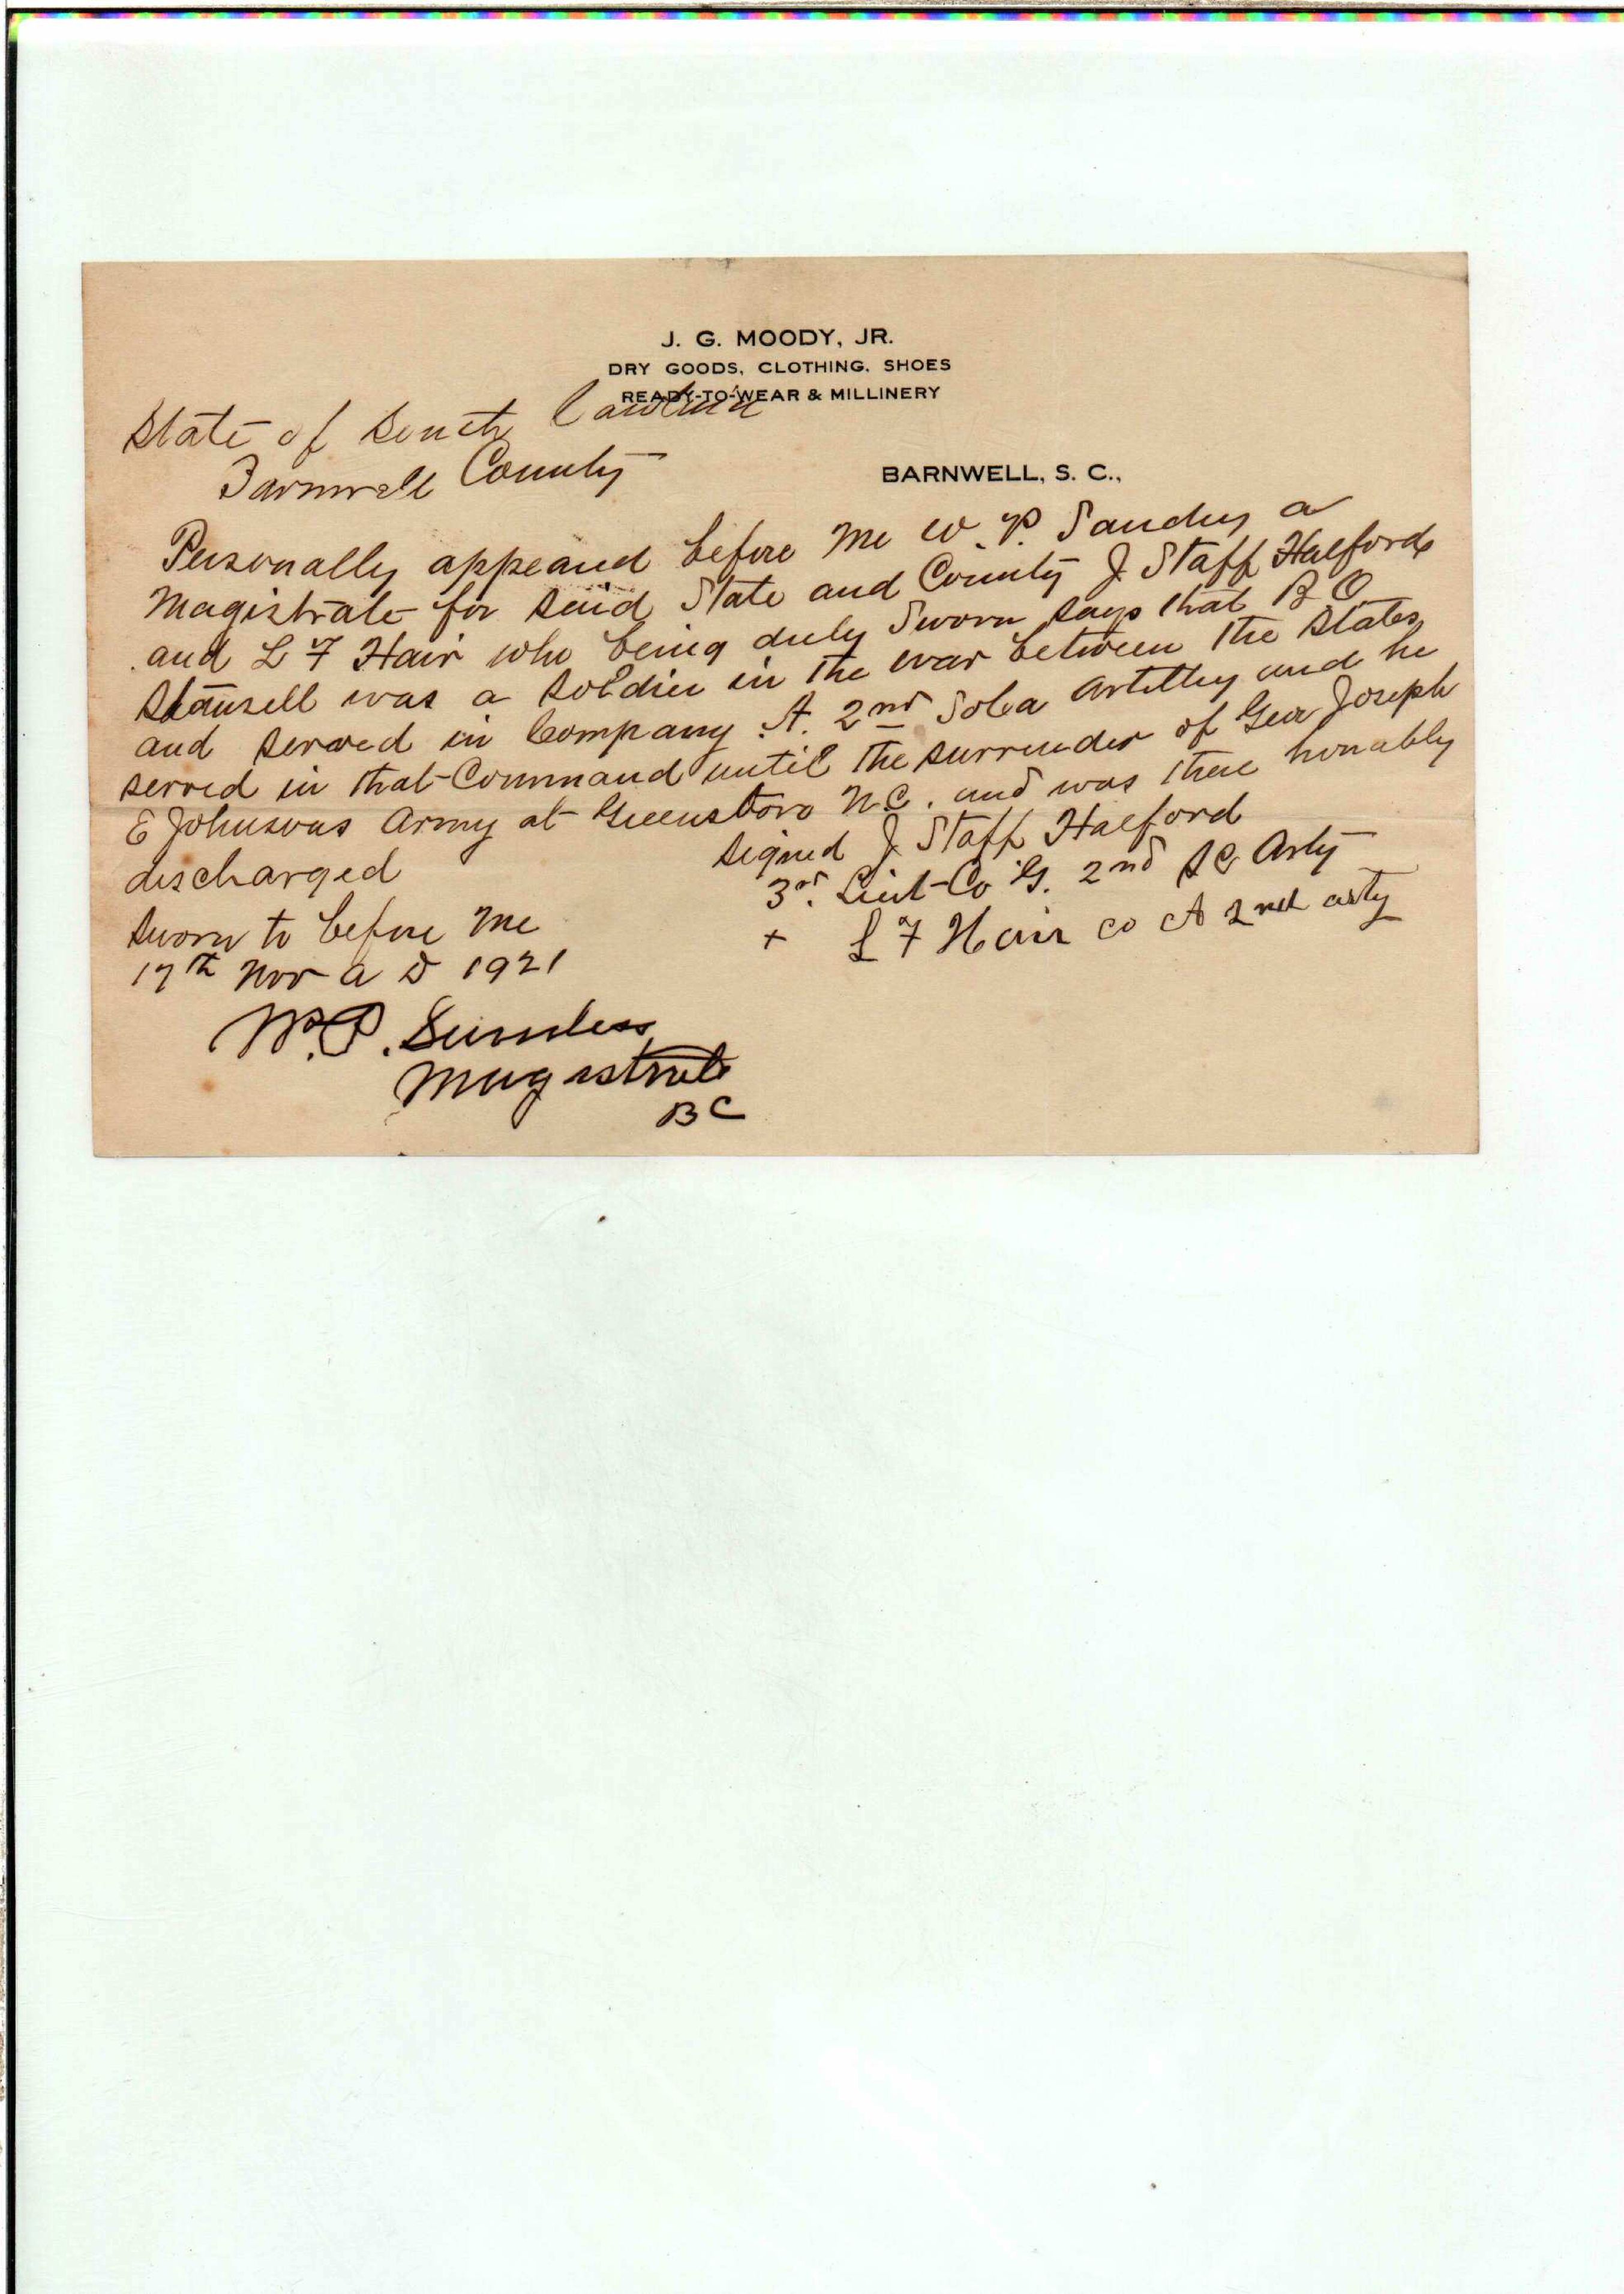 J. G. MOODY, JR.
DRY GOODS, CLOTHING, SHOES
READY-TO-WEAR & MILLINERY
State of South Carolina
Barnwell County
BARNWELL, S. C.,
Personally appeard before me W. P. Sanders a
Magistrate for said State and County J Staff Halford
and L F Hair who being duly Sworn says that B O
Stansell was a soldier in the war between the states
and served in Company A. 2nd So Ca Artillery and he
served in that Command until the surrender of Gen Joseph
E Johnsons Army at Greensboro N.C. and was there honably
discharged
signed J Staff Halford
3rd. Lieut Co G. 2nd SC Arty
Sworn to before me
+ L F Hair co A 2nd arty
17th Nov A D 1921
W. P. Sanders
Magistrate
BC